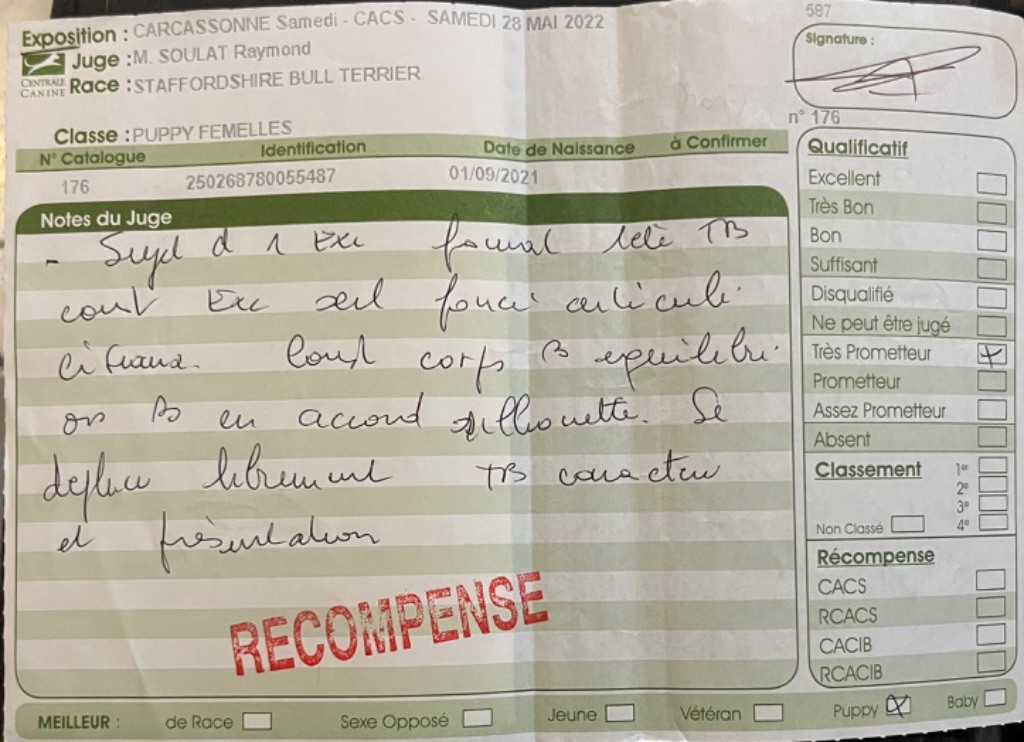 Exposition : CARCASSONNE Samedi - CACS - SAMEDI 28 MAI 2022
Juge : M. SOULAT Raymond
CENTRALE CANINE
Race : STAFFORDSHIRE BULL TERRIER
Classe : PUPPY FEMELLES
N° Catalogue Identification Date de Naissance à Confirmer
176 250268780055487 01/09/2021
Notes du Juge
- Sujet d 1 Exc format tete TB
cont Exc oeil foncé articulé
ciseaux. corps B equilibré
os B en accord silhouette. Se
deplace librement TB caractere
et présentation
RECOMPENSE
587
Signature :
n° 176
Qualificatif
Excellent
Très Bon
Bon
Suffisant
Disqualifié
Ne peut être jugé
Très Prometteur
Prometteur
Assez Prometteur
Absent
Classement 1er
2e
3e
Non Classé 4e
Récompense
CACS
RCACS
CACIB
RCACIB
MEILLEUR : de Race Sexe Opposé Jeune Vétéran Puppy Baby